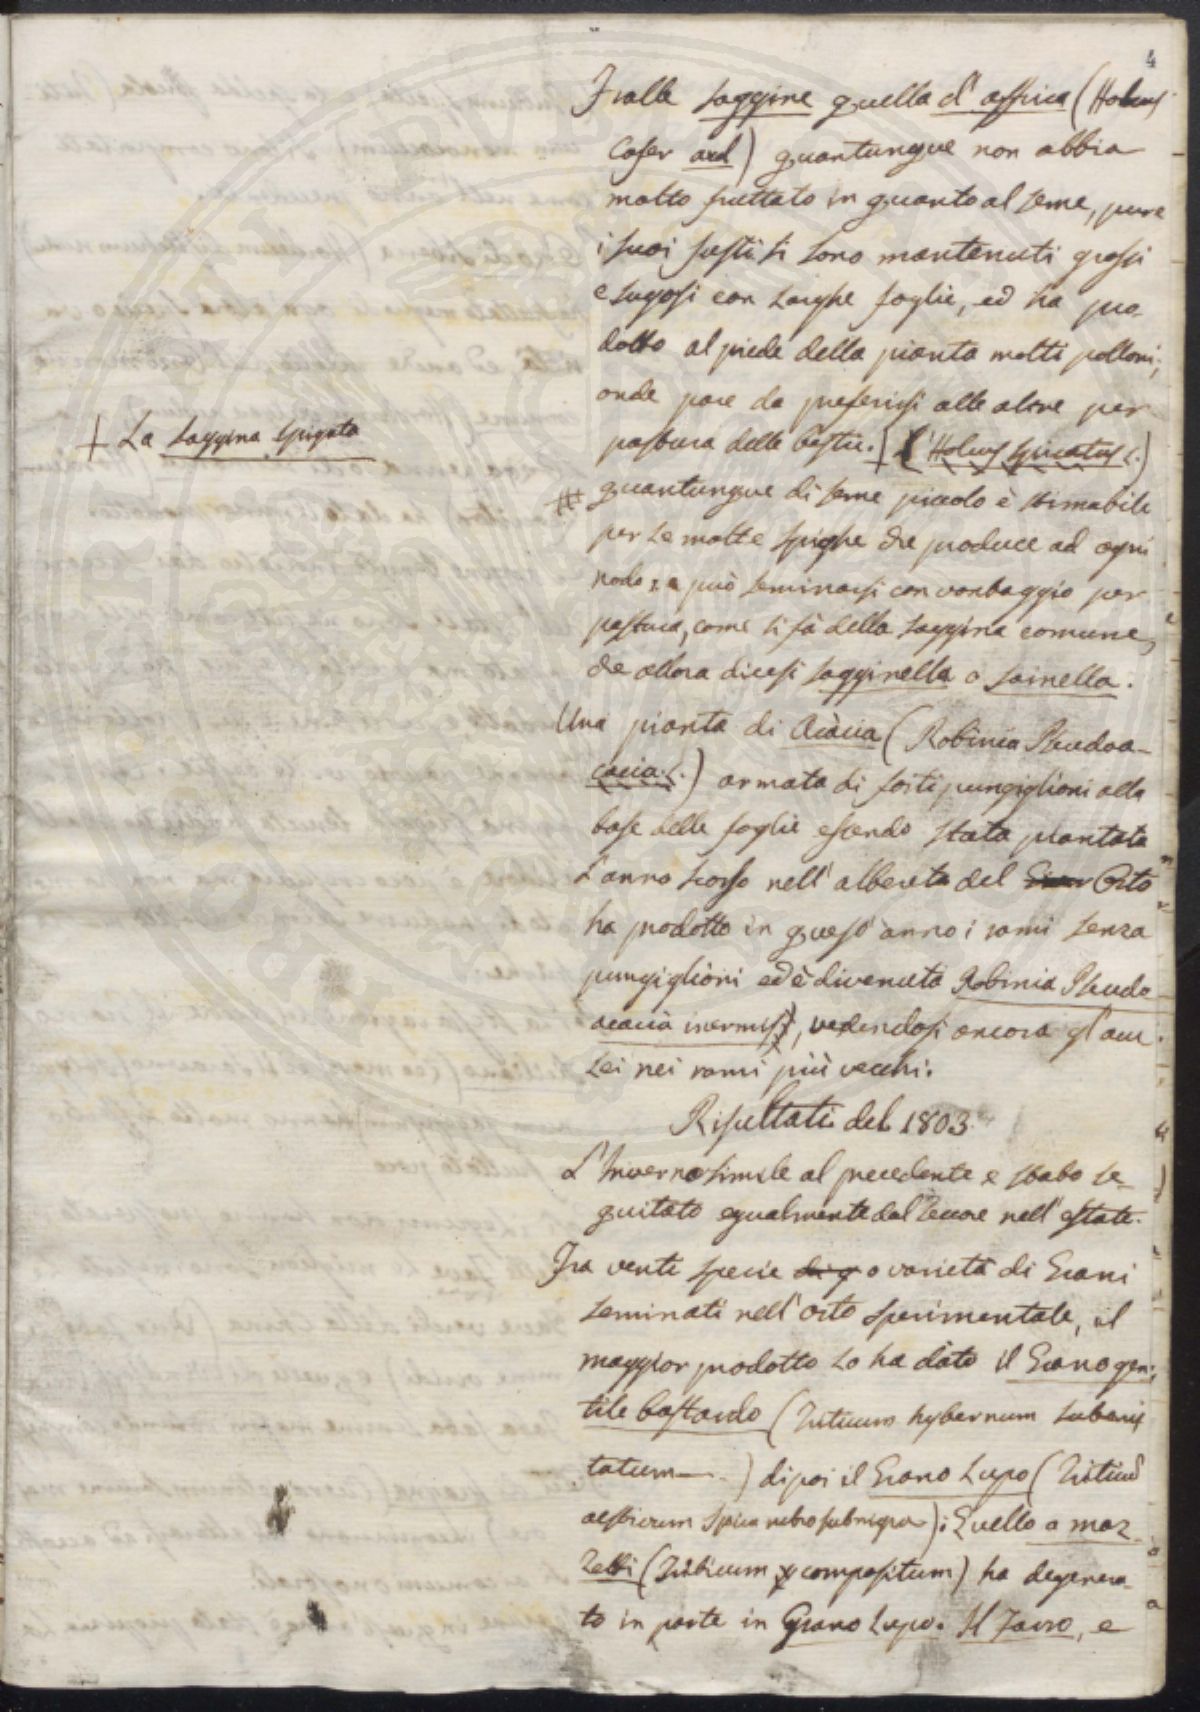 4
Tralle Saggine quella d'affrica (Holcus
Cafer ard) quantunque non abbia
molto fruttato in quanto al seme, pure
i suoi fusti si sono mantenuti grossi
e sugosi con larghe foglie, ed ha pro-
dotto al piede della pianta molti polloni;
onde pare da preferirsi alle altre per
pastura delle bestie. + L'Holcus spicatus L.)
+ La Saggina spigata
quantunque di seme piccolo è stimabile
per le molte spighe che produce ad ogni
nodo, e può seminarsi con vantaggio per
pastura, come si fà della saggina comune,
che allora dicesi sagginella o sainella.
Una pianta di Acàcia (Robinia Pseudoa-
cacia. L.) armata di forti pungiglioni alla
base delle foglie essendo stata piantata
l'anno scorso nell'albereta del Orto
ha prodotto in quest'anno i rami senza
pungiglioni ed è divenuta Robinia Pseudo
acacia inermis), vedendosi ancora gl'acu-
lei nei rami più vecchi.
Risultati del 1803
L'Inverno simile al precedente e stato se-
guitato egualmente dal Seccore nell'estate.
Tra venti specie di g o varietà di Grani
seminati nell'orto sperimentale, il
maggior prodotto lo ha dato il Grano gen-
tile bastardo (Triticum hybernum subaris
tatum ) dipoi il Grano Lupo (Triticũ
aestivum spica rubro subnigra); Quello a maz-
zetti (Triticum compositum) ha degenera-
to in parte in Grano Lupo. Il Farro, e